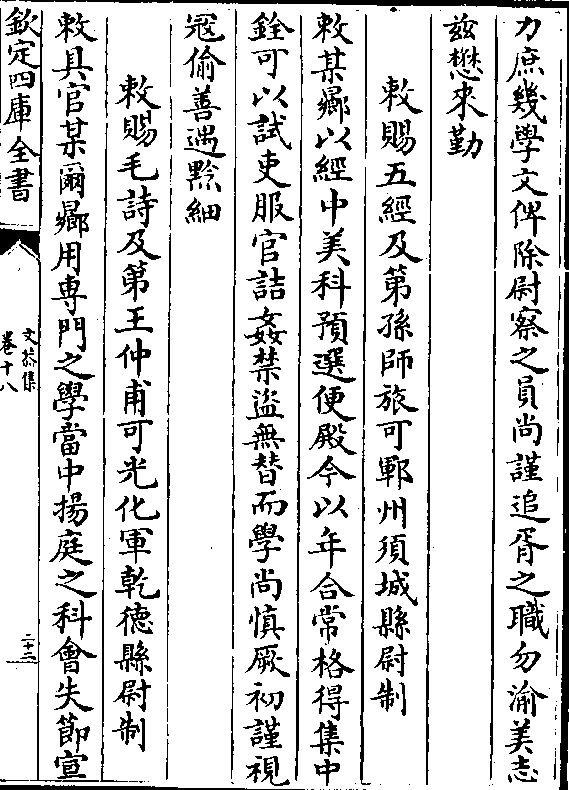 力庶幾學文俾除尉察之員尚謹追胥之職勿渝美志
兹懋來勤
敕賜五經及第孫師旅可鄆州須城縣尉制
敕某鄉以經中美科預選便殿今以年合常格得集中
銓可以試吏服官詰姦禁盜無替而學尚慎厥初謹視
冦偷善遇黔細
敕賜毛詩及第王仲甫可光化軍乾德縣尉制
敕具官某爾鄉用専門之學當中揚庭之科會失節宣
欽定四庫全書
文恭集
卷十八
二十三